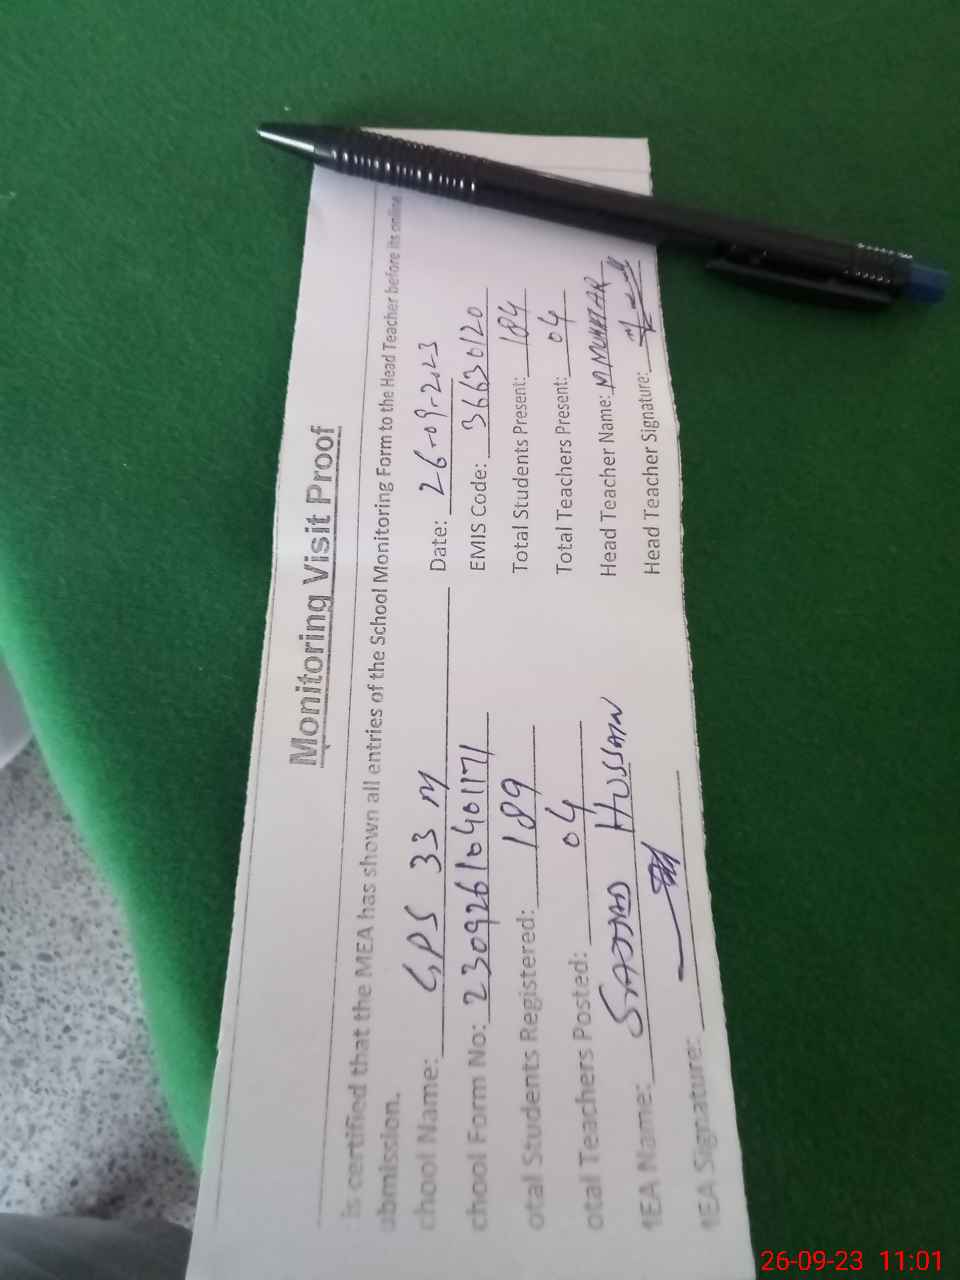 Monitoring Visit Proof
is certified that the MEA has shown all entries of the School Monitoring Form to the Head Teacher before its online
ubmission.
chool Name: GPS 33 M Date: 26-09-2023
chool Form No: 23092610401171 EMIS Code: 36630120
otal Students Registered: 189 Total Students Present: 184
otal Teachers Posted: 04 Total Teachers Present: 04
MEA Name: SAJJAD HUSSAIN Head Teacher Name: M MUKHTAR
MEA Signature: Head Teacher Signature:
26-09-23 11:01